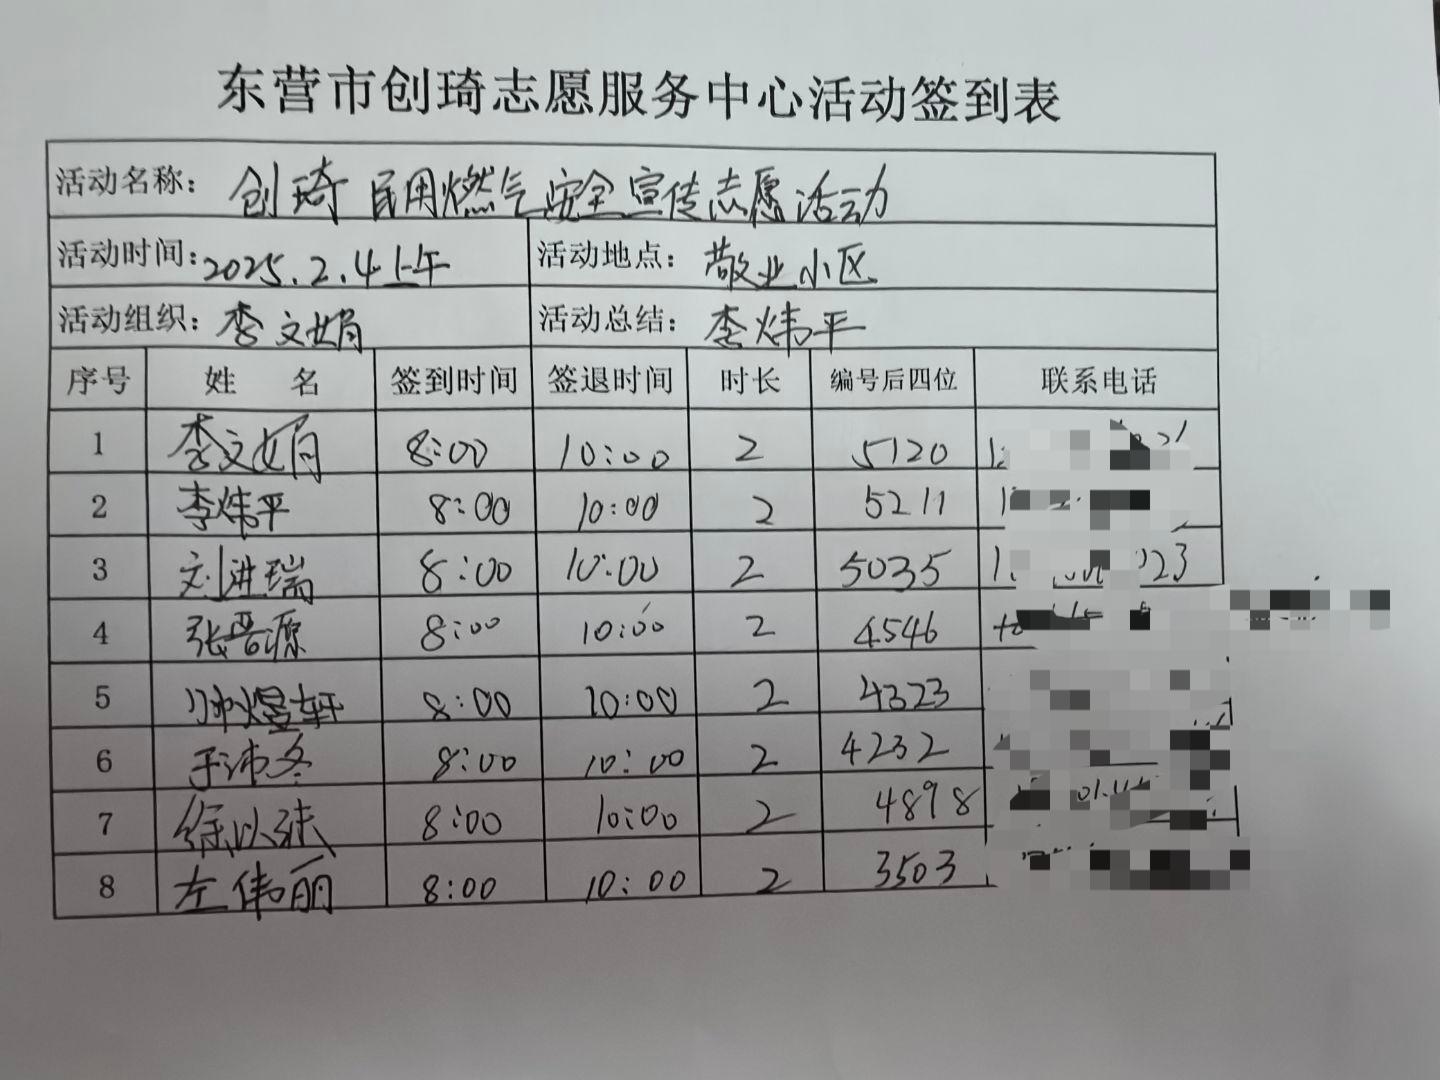 东营市创琦志愿服务中心活动签到表
活动名称：创琦民用燃气安全宣传志愿活动
活动时间：2025.2.4上午 活动地点：敬业小区
活动组织：李文娟 活动总结：李炜平
序号 姓 名 签到时间 签退时间 时长 编号后四位 联系电话
1 李文娟 8:00 10:00 2 5120
2 李炜平 8:00 10:00 2 5211
3 刘进瑞 8:00 10:00 2 5035
4 张晋源 8:00 10:00 2 4546
5 8:00 10:00 2 4323
6 8:00 10:00 2 4232
7 8:00 10:00 2 4898
8 左伟丽 8:00 10:00 2 3503